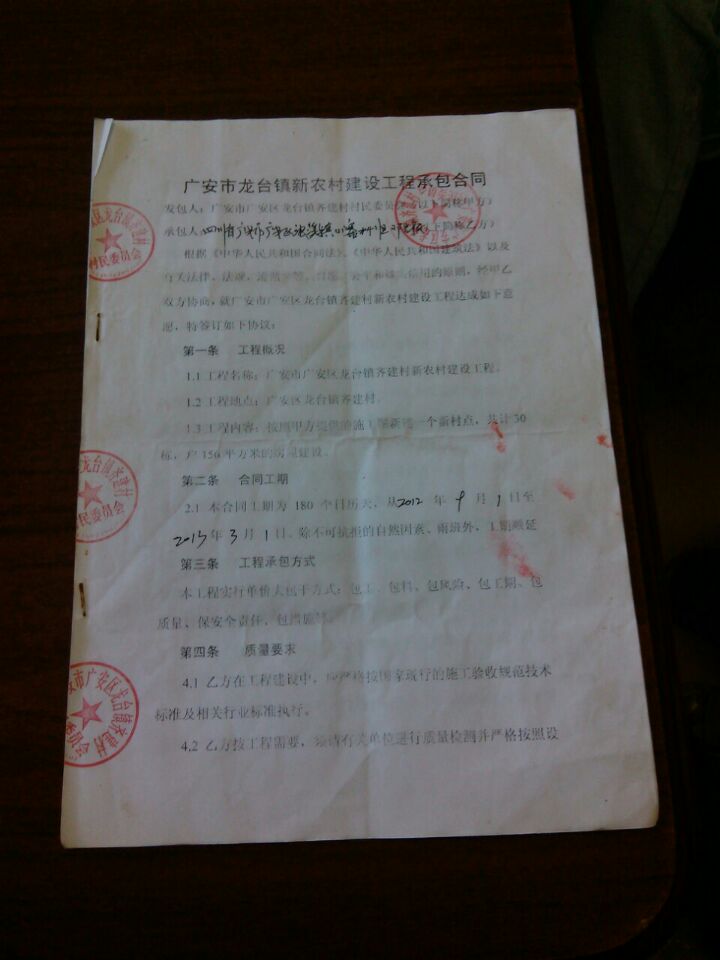 广安市龙台镇新农村建设工程承包合同
发包人：广安市广安区龙台镇齐建村村民委员会（以下简称甲方）
承包人：四川省广安市广安区（以下简称乙方）
根据《中华人民共和国合同法》、《中华人民共和国建筑法》以及
有关法律、法规，遵循平等、自愿、公平和诚实信用的原则，经甲乙
双方协商，就广安市广安区龙台镇齐建村新农村建设工程达成如下意
愿，特签订如下协议：
第一条 工程概况
1.1 工程名称：广安市广安区龙台镇齐建村新农村建设工程。
1.2 工程地点：广安区龙台镇齐建村。
1.3 工程内容：按照甲方提供的施工图新建一个新村点，共计30
栋，户 156 平方米的房屋建设。
第二条 合同工期
2.1 本合同工期为 180 个日历天，从2012 年 9 月 1 日至
2013 年 3 月 1 日。除不可抗拒的自然因素、雨班外，工期顺延
第三条 工程承包方式
本工程实行单价大包干方式：包工、包料、包风险、包工期、包
质量、保安全责任、包措施等。
第四条 质量要求
4.1 乙方在工程建设中，应严格按国家现行的施工验收规范技术
标准及相关行业标准执行。
4.2 乙方按工程需要，须请有关单位进行质量检测并严格按照设